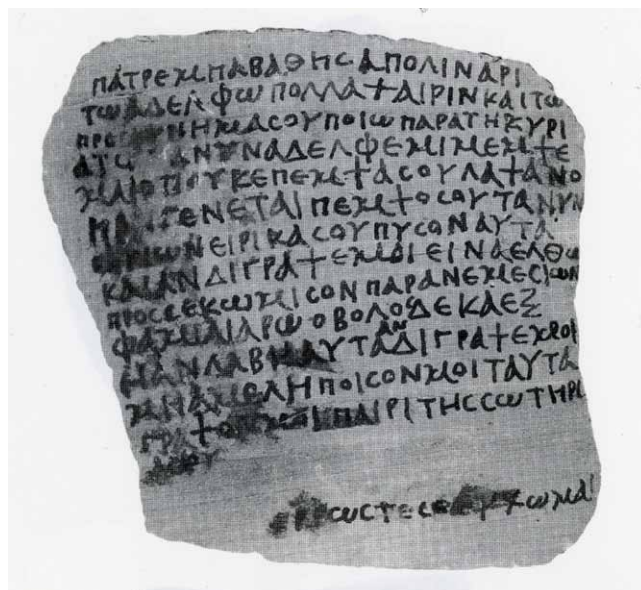 ΠΑΤΡΕΜΠΑΒΑΘΗϹΑΠΟΛΙΝΑΡΙ
ΤΩΑΔΕΛΦΩΠΟΛΛΑΧΑΙΡΙΝΚΑΙΤΩ
ΠΡΟϹΚΥΝΗΜΑϹΟΥΠΟΙΩΠΑΡΑΤΗΚΥΡΙ
ΑΝΥΝΑΔΕΛΦΕΜΙΜΕΜΨΕ
ΜΑΙΟΠΟΥΚΕΠΕΜΨΑϹΟΥΛΑΧΑΝΟ
ΓΕΝΕΤΑΙΠΕΜΨΟϹΟΥΤΑΝΥΝ
ΩΝΕΙΡΙΚΑϹΟΥΠΥϹΟΝΑΥΤΑ
ΚΑΙΑΝΔΙΓΡΑΨΕΜΟΙΕΙΝΑΕΛΘΩ
ΠΡΟϹϹΕΚΩΜΙϹΟΝΠΑΡΑΝΕΜΕϹΙΩΝ
ΦΑΜΑΙΑΡΩΟΒΟΛΟΥΔΕΚΑΕΞ
ΜΑΝΛΑΒΗϹΑΥΤΑΑΝΔΙΓΡΑΨΕΜΟΙ
ΜΗΑΜΕΛΗΠΟΙϹΟΝΜΟΙΤΑΥΤΑ
ΓΡΑΨΟΝΜΟΙΠΑΙΡΙΤΗϹϹΩΤΗΡΙ
ΕΡΡΩϹΤΕϹΕΕΥΧΩΜΑΙ